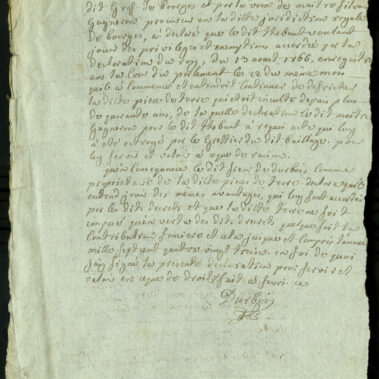 dit Gref de bourges et par la voix de maitre Silvain
Gagneron procureur en la ditte juridiction royale
de bourges, a déclaré que le dit thebaut voulant
jouir des privileges et exemptions accordés par la
declaration du roy, du 13 aoust 1766, enregistré
en la Cour du parlement le 22 du meme mois
a commencé et entendoit continuer de defricher
la ditte piece de terre qui etoit inculte depuis plus
de quarante ans, de la quelle declaration le dit maitre
Gagneron pour le dit thebaut a requis acte qui luy
a été octroyé par le Greffier du dit bailliage. pour
luy servir et valoir a que de raison.
quen Consequence le dit sieur de durbois comme
proprietaire de la ditte piece de terre declare qu'il
entend jouir des memes avantages, qui luy sont accordés
par les dits decrets et que la ditte terre ne soit
compris qu'en vertu des dits decrets
contribution fonciere et ce jusque et compris l'année
mille sept cent quatre vingt treize, en foi de quoi
jay signé la presente declaration pour servir et
valoir ce que de droit, fait a
Durbois